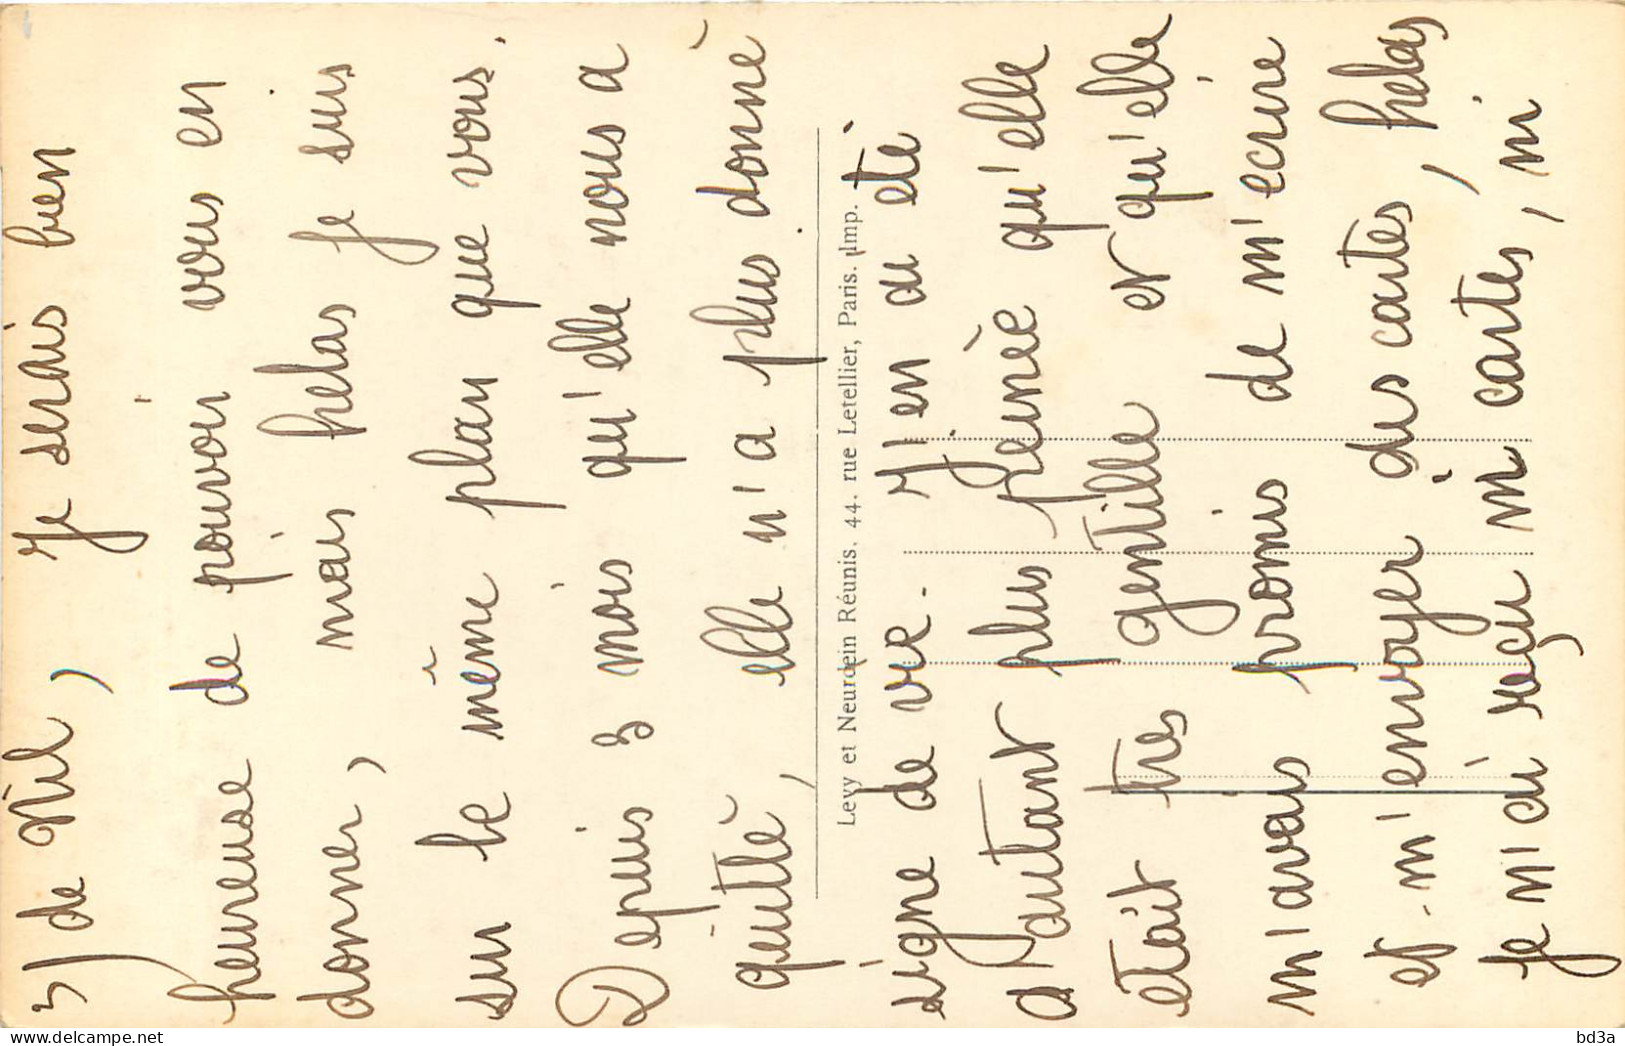 3) de Nil, Je serais bien
heureuse de pouvoir vous en
donner, mais helas je suis
sur le même plan que vous.
Depuis 3 mois qu'elle nous a
quitté, elle n'a plus donné
signe de vie. J'en ai eté
d'autant plus peinée qu'elle
etait tres gentille et qu'elle
m'avais promis de m'ecrire
et m'envoyer des cartes, helas
je n'ai reçu ni cartes, ni
Levy et Neurdein Réunis, 44, rue Letellier, Paris. Imp.
bd3a